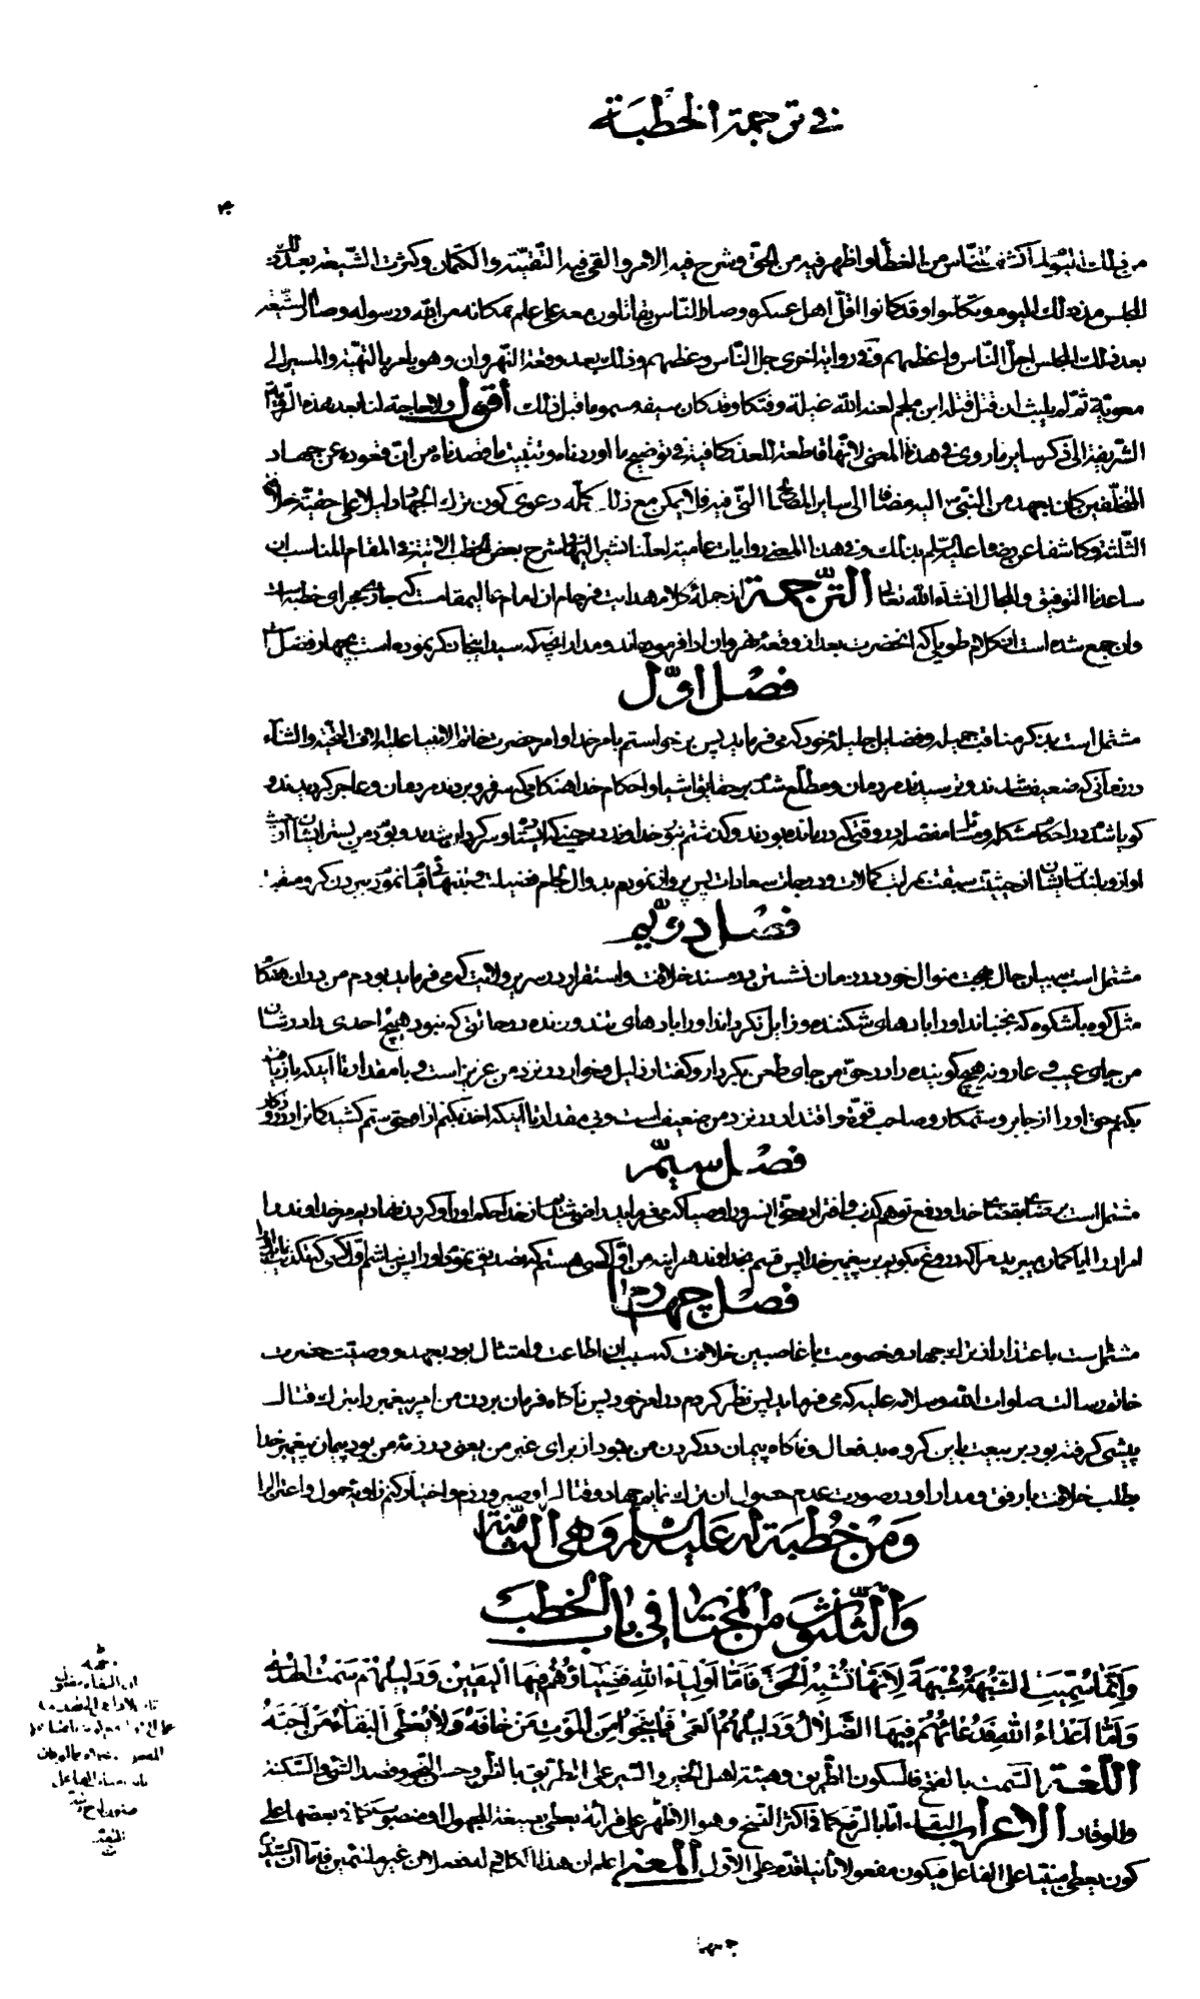 في ترجمة الخطبة
من ذلك اليوم الناس من الخطأ واظهر فيه من الحق وشرح فيه الامر والقى فيه التقيّة والكتمان وكثرت الشّيعة بعد ذلك
المجلس من ذلك اليوم وتكلّموا وقد كانوا اقلّ اهل عسكره وصار النّاس يقاتلون معه على علم بمكانه من الله ورسوله وصار الشّيعة
بعد ذلك المجلس اجلّ النّاس واعظمهم وفي رواية اخرى جلّ النّاس وعظمهم وذلك بعد وقعة النّهروان وهو يأمر بالتّهيّة والمسير الى
معوية ثمّ لم يلبث ان قتل قتله ابن ملجم لعنه الله غيلة وفتكا وقد كان سيفه مسموما قبل ذلك أقول ولا حاجة لنا بعد هذه الرّواية
الشّريفة الى ذكر ساير ما روى في هذا المعنى لانّها قاطعة للعذر كافية في توضيح ما اوردناه وتثبيت ما قصدناه من انّ قعوده عن جهاد
المتخلّفين كان بعهد من النّبيّ اليه مضافا الى ساير المصالح الّتي فيه فلا يمكن مع ذلك كلّه دعوى كون ترك الجهاد دليلا على حقّية خلافة
الثّلثة وكاشفا عن رضاه عليه السّلم بذلك وفي هذا المعنى روايات عامية لعلّنا نشير اليها في شرح بعض الخطب الآتية في المقام المناسب ان
ساعدنا التوفيق والمجال انشاء الله تعالى الترجمة از جملهٔ كلام هدايت فرجام ان امام عاليمقامست كه جارى مجراى خطبه است
وان جمع شده است از كلام طويلى كه انحضرت بعد از وقعهٔ نهروان ادا فرموده‌اند ومدار انچه كه سيد اينجا ذكر نموده است بچهار فصل است
فصل اوّل
مشتمل است بذكر مناقب جميله وفضايل جليله خود كه مى فرمايد پس برخواستم بامر خدا وامر حضرت خاتم الانبيا عليه الاف التّحيّة والثّناء
در زمانى كه ضعيف شدند وترسيدند مردمان ومطّلع شدم بر حقايق اشيا واحكام خدا هنگامى كه سر فرو بردند مردمان وعاجز گرديدند و
گويا شدم در احكام مشكله ومسائل معضله در وقتى كه درمانده بودند وگذشتم بنور خدا در حينى كه ايستاده وسرگردان شدند وبودم من پست‌ترين ايشان از حيث
اواز وبلندترين ايشان از حيثيّت سبقت بمراتب كمالات ودرجات سعادات پس پرواز نمودم
فصل دويم
مشتمل است ببيان حال خود در زمان نشستن در مسند خلافت واستقرار در سرير ولايت كه مى فرمايد بودم من در ان هنگام
مثل كوه باشكوه كه نجنباند او را بادهاى شكننده وزايل نگرداند او را بادهاى تند وزنده در حالتى كه نبود هيچ احدى را در شان
من جاى عيب وعار ونه هيچ گوينده را در حق من جاى طعن بكردار وگفتار ذليل وخوار در نزد من عزيز است وبا مقدار تا اينكه باز
بگيرم حق او را از جابر وستمكار وصاحب قوّة واقتدار در نزد من ضعيف است وبى مقدار تا اينكه اخذ بكنم از او حق ستم كشيدگان را
فصل سيّم
مشتمل است برضا بقضاى خدا ودفع توهم كذب وافترا در حقّ انسرور اوصيا كه مى فرمايد راضى شديم از خدا حكم او را وگردن نهاديم مر خداوند را
امر او را ايا گمان مى‌بريد مرا كه دروغ بگويم بر پيغمبر خدا پس قسم بخداوند هر اينه من اوّل كسى هستم كه تصديق نمود او را پس نباشم اوّل كسى كه تكذيب نمايد او را
فصل چهارم
مشتمل است باعتذار از ترك جهاد وخصومت با غاصبين خلافت كه سبب ان اطاعت وامتثال بود بعهد ووصيّت حضرت
خاتم رسالت صلوات الله وسلامه عليه كه مى فرمايد پس نظر كردم در امر خود پس ناگاه فرمان بردن من امر پيغمبر را بترك قتال
پيشى گرفته بود بر بيعت باين گروه بدفعال وناگاه پيمان در گردن من بود از براى غير من يعنى در ذمّهٔ من بود پيمان پيغمبر خدا
بطلب خلافت با رفق ومدارا ودر صورت عدم حصول ان ترك نمايم جهاد وقتال را وصبر ورزم واختيار كنم زاويهٔ خمول واعتزال را
وَمِنْ خُطْبَةٍ لَهُ عَلَيْهِ السَّلامُ وَهِيَ الثّامِنَة
وَالثَّلثُونَ مِنَ الْمُخْتارِ في بابِ الْخُطَبِ
وَاِنَّما سُمِّيَتِ الشُّبْهَةُ شُبْهَةً لِاَنَّها تُشْبِهُ الْحَقَّ فَاَمّا اَوْلِياءُ اللهِ فَضِياؤُهُمْ فيهَا الْيَقينُ وَدَليلُهُمْ سَمْتُ الْهُدى
وَاَمّا اَعْداءُ اللهِ فَدُعاؤُهُمْ فيهَا الضَّلالُ وَدَليلُهُمُ الْعَمى فَما يَنْجُو مِنَ الْمَوْتِ مَنْ خافَهُ وَلا يُعْطَى الْبَقاءَ مَنْ اَحَبَّهُ
اللّغة السّمت بالفتح فالسكون الطّريق وهيئة اهل الخير والسّير على الطّريق بالظّن وحسن النّحو وقصد الشّيء والسّكينة
والوقار الاعراب البقاء امّا بالرّفع كما في اكثر النّسخ وهو الاظهر على قرائة يعطى بصيغة المجهول او منصوب كما في بعضها على
كون يعطى مبنيّا على الفاعل فيكون مفعولا ثانيا قدّم على الاوّل المعنى اعلم ان هذا الكلام له فصلان غير ملتئمين